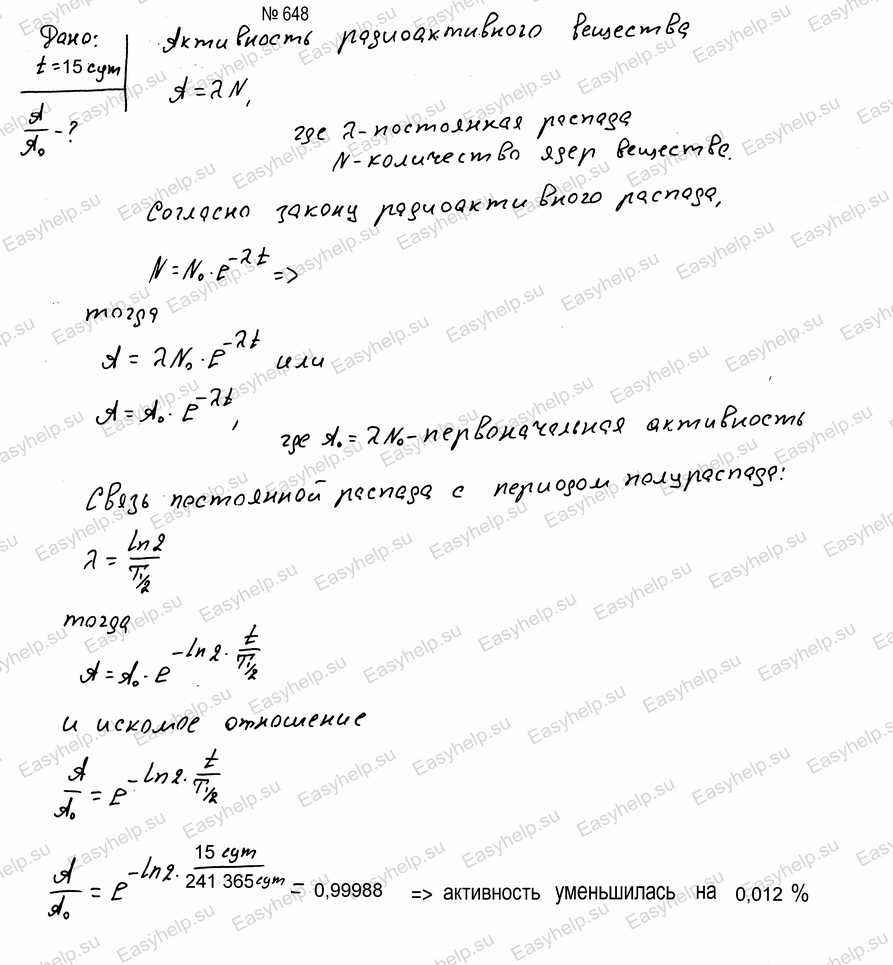 № 648
Дано:
t = 15 сут
A/A₀ - ?
Активность радиоактивного вещества
A = λN,
где λ - постоянная распада
N - количество ядер вещества.
Согласно закону радиоактивного распада,
N = N₀ · e^(-λt) =>
тогда
A = λN₀ · e^(-λt) или
A = A₀ · e^(-λt),
где A₀ = λN₀ - первоначальная активность
Связь постоянной распада с периодом полураспада:
λ = ln2/T₁/₂
тогда
A = A₀ · e^(-ln2 · t/T₁/₂)
и искомое отношение
A/A₀ = e^(-ln2 · t/T₁/₂)
A/A₀ = e^(-ln2 · 15 сут/241·365 сут) = 0,99988 => активность уменьшилась на 0,012 %
Easyhelp.su